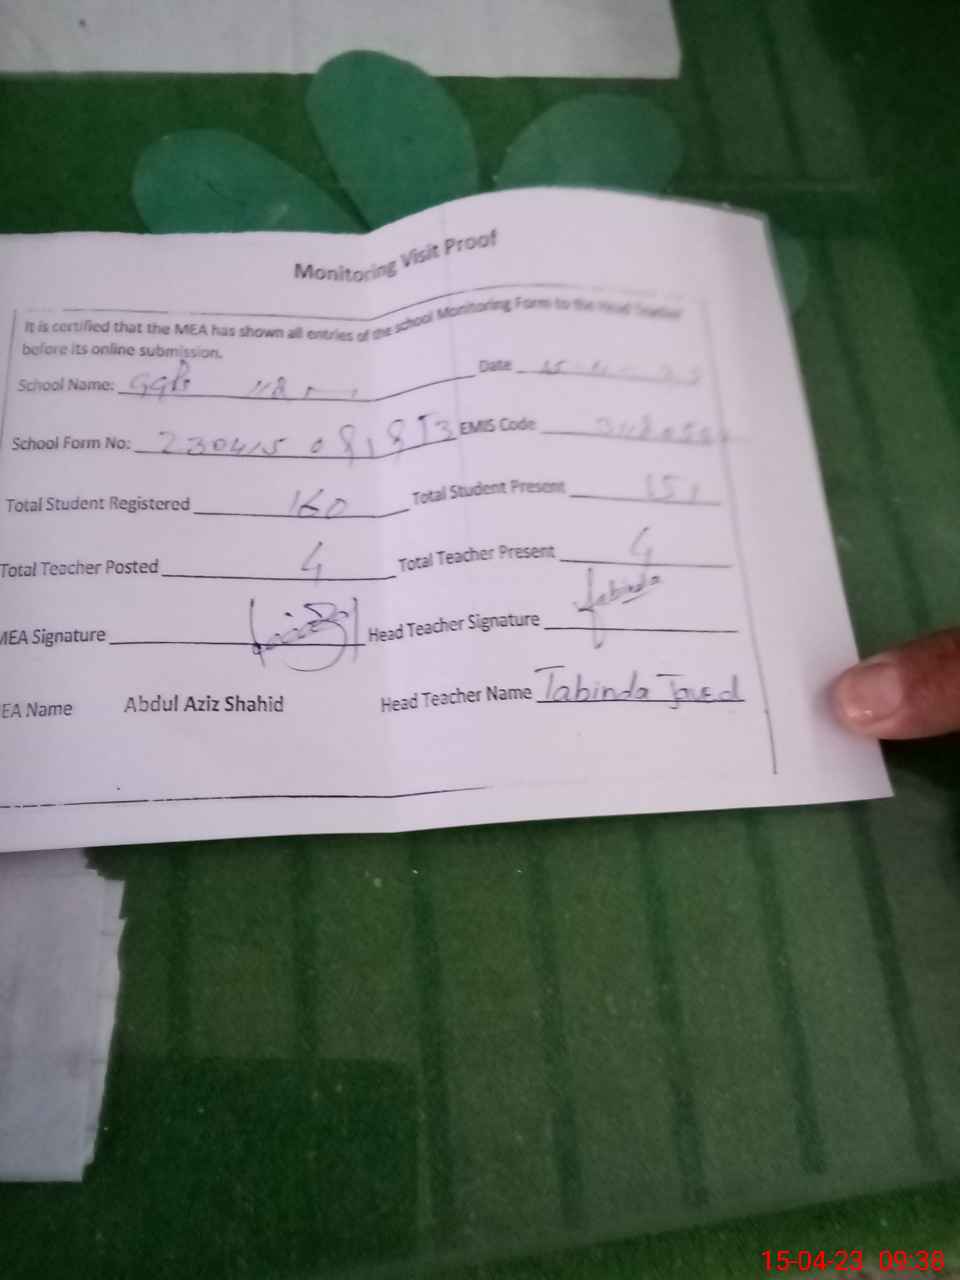 Monitoring Visit Proof
It is certified that the MEA has shown all entries of the school Monitoring Form to the Head Teacher
before its online submission.
Date
School Name:
School Form No: EMIS Code
Total Student Registered 160 Total Student Present 151
Total Teacher Posted 4 Total Teacher Present 4
MEA Signature Head Teacher Signature Tabinda
EA Name Abdul Aziz Shahid Head Teacher Name Tabinda Javed
15-04-23 09:38